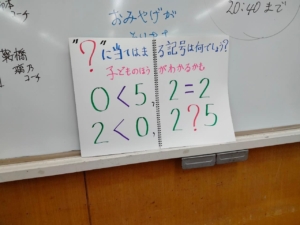 おみやげが
20:40まで
"?"に当てはまる記号は何でしょう?
子どものほうがわかるかも
0<5, 2=2
2<0, 2?5
コーチ
コーチ